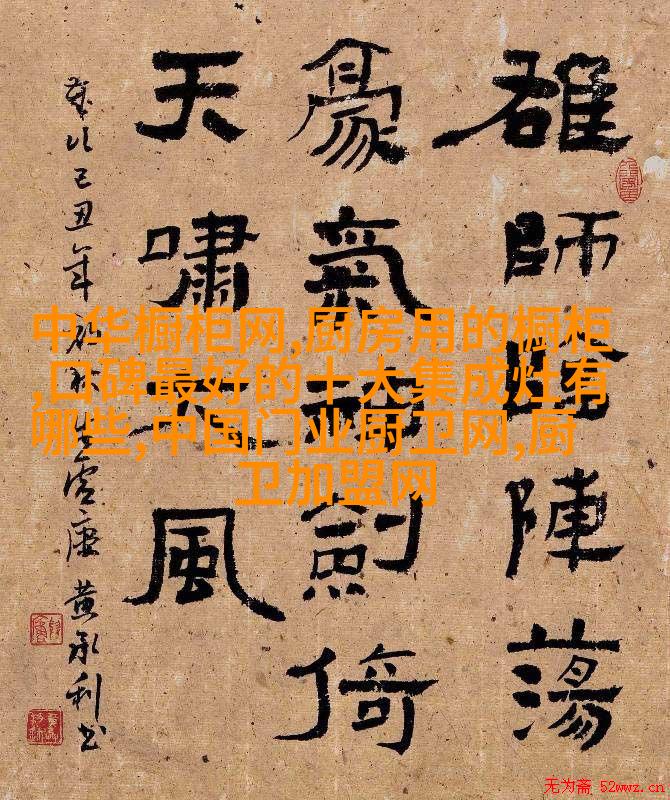 雄師陣蕩
豪氣劍倚
天嘯風
歲次己丑年
黄永利书
中华橱柜网,厨房用的橱柜
,口碑最好的十大集成灶有
哪些,中国门业厨卫网,厨
卫加盟网
无为斋 52wwz.cn